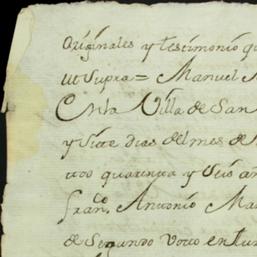 Originales y testimonio qu
ut Supra = Manuel
En la Villa de San
y Siete dias del mes de
tos quarenta y Seis añ
Fran.co Antonio Ma
de Segundo Voto en tur